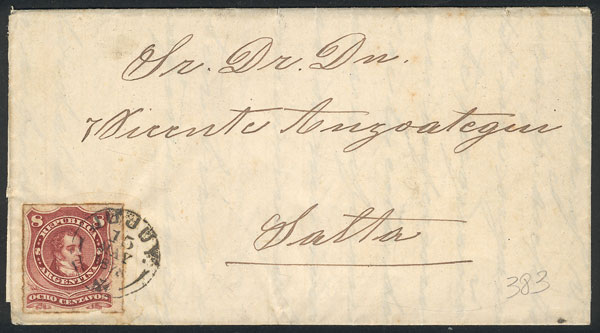 Sr. Dr. Dn.
Vicente Anzoategui
Salta
8 REPUBLICA 8
ARGENTINA
OCHO CENTAVOS
JUJUY
15
383